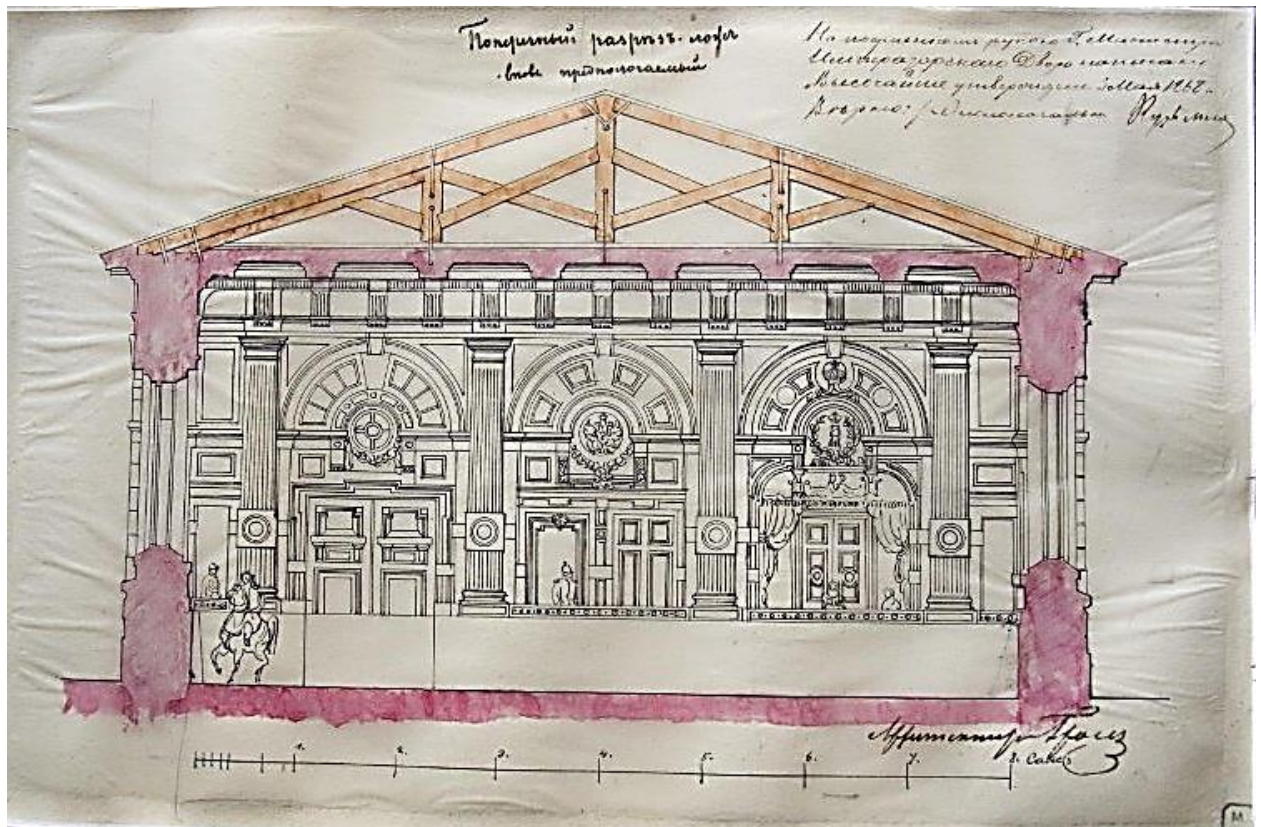 Поперечный разрезъ-ложъ
вновь предпологаемый
На подлинномъ рукою Г. Министра
Императорскаго Двора написано
Высочайше утверждено 3 Мая 186
Вѣрно:
Архитекторъ
1. 2. 3. 4. 5. 6. 7. 8. Саж.
М